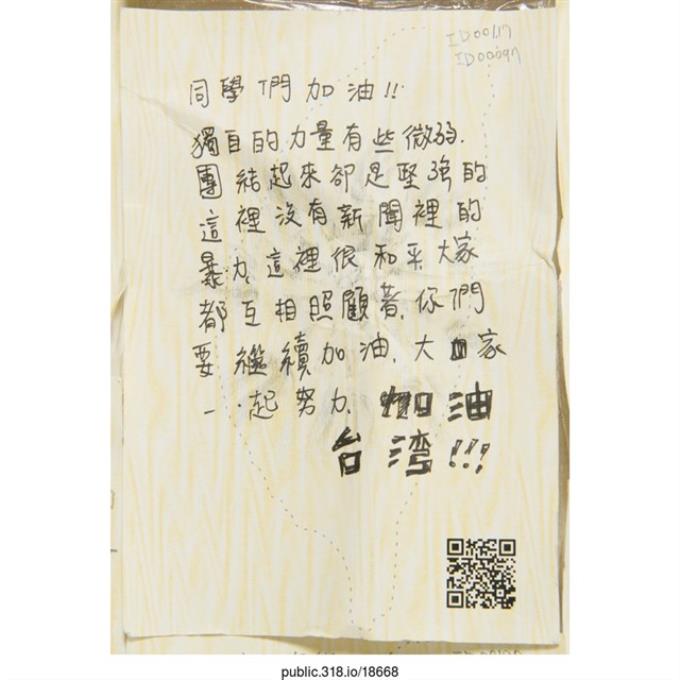 ID00117
ID00097
同學們加油!!
獨自的力量有些微弱.
團結起來卻是堅強的
這裡沒有新聞裡的
暴力,這裡很和平,大家
都互相照顧著,你們
要繼續加油,大家
一起努力,加油
台湾!!!
public.318.io/18668